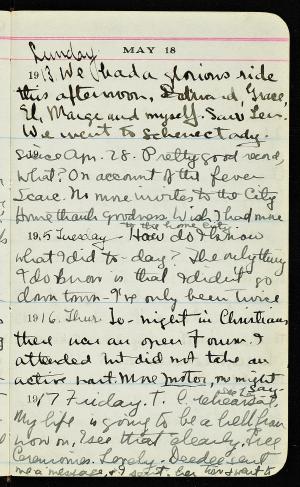 MAY 18
Sunday
1913 We had a glorious ride
this afternoon, Edna, Grace,
El, Marge and myself. Saw Len.
We went to Schenectady.
since Apr. 28. Pretty good record,
What? On account of the fever
scare. No more invites to the City
Home thank goodness. Wish I had more
to the home City
1915 Tuesday - How do I know
what I did to-day? The only thing
I do know is that I didn't go
down town - I've only been twice
1916. Thur To-night in Christians
there was an open Forum. I
attended but did not take an
active part. More motor, no might
say.
1917 Friday. T. C. rehearsal.
My life is going to be a hell from
now on, I see that clearly. Tree
Ceremonies. Lovely - Deedee sent
me a message, & I sent her two & want to